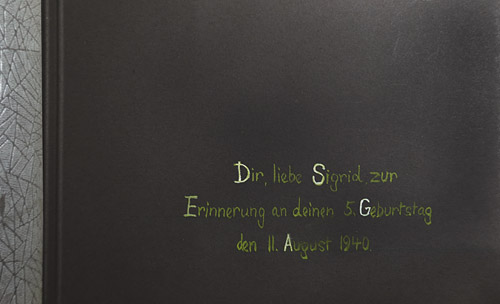 Dir, liebe Sigrid, zur
Erinnerung an deinen 5. Geburtstag
den 11. August 1940.